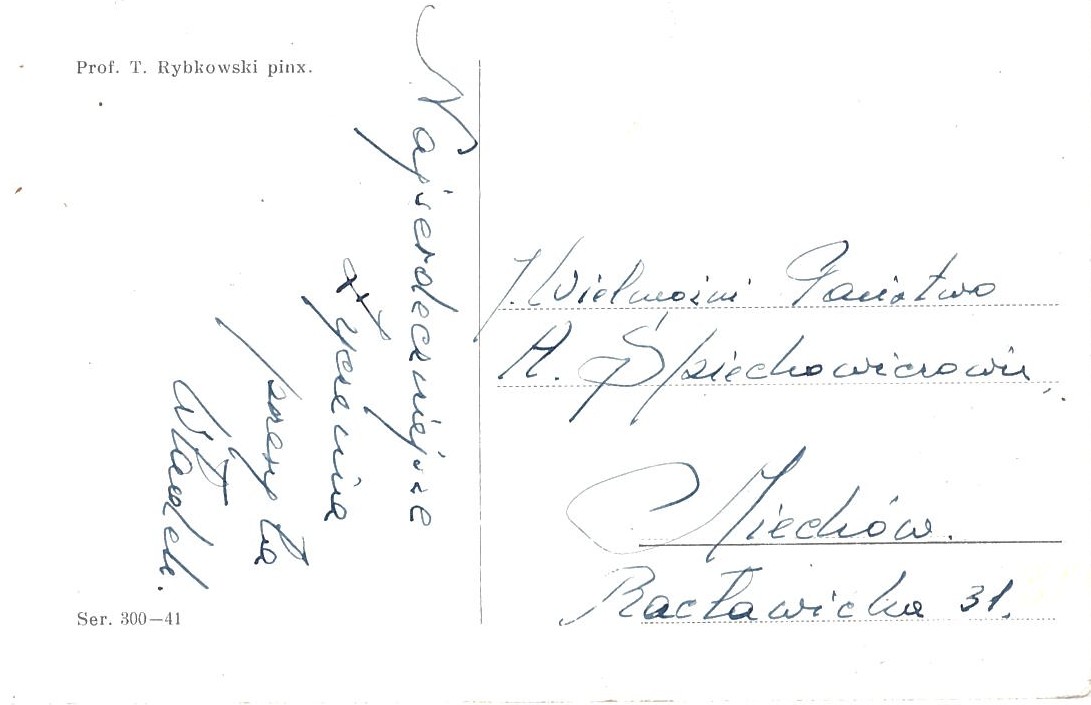 Prof. T. Rybkowski pinx.
Najserdeczniejsze
życzenia
przesyła
Władek.
Ser. 300—41
J. Wielmożni Państwo
A. Śpiechowiczowie
Miechów.
Racławicka 31.